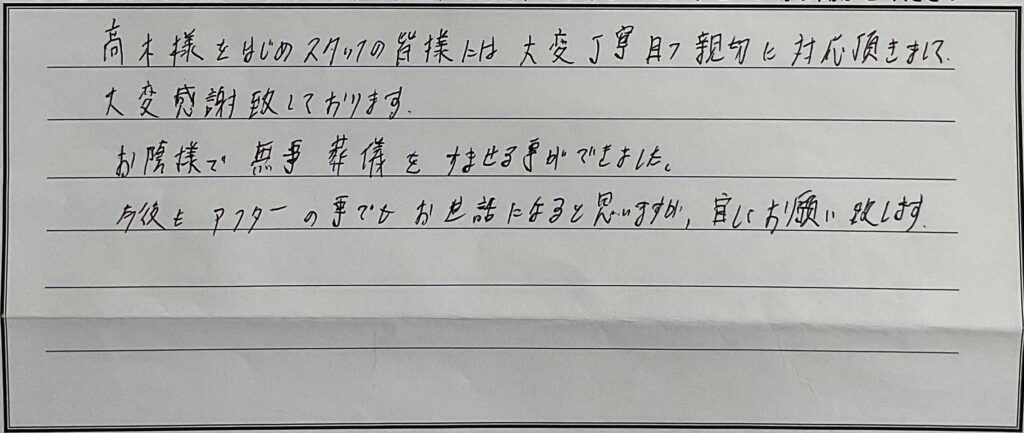 高木様をはじめスタッフの皆様には大変丁寧且つ親切に対応頂きまして、
大変感謝致しております。
お陰様で無事葬儀をすませる事ができました。
今後もアフターの事でもお世話になると思いますが、宜しくお願い致します。